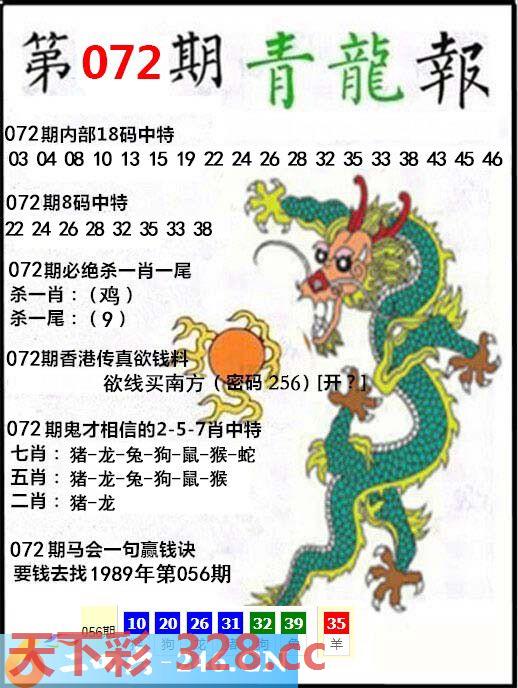 第072期青龍報
072期内部18码中特
03 04 08 10 13 15 19 22 24 26 28 32 35 33 38 43 45 46
072期8码中特
22 24 26 28 32 35 33 38
072期必绝杀一肖一尾
杀一肖：（鸡）
杀一尾：（9）
072期香港传真欲钱料
欲线买南方（密码 256）[开？]
072期鬼才相信的2-5-7肖中特
七肖：猪-龙-兔-狗-鼠-猴-蛇
五肖：猪-龙-兔-狗-鼠-猴
二肖：猪-龙
072期马会一句赢钱诀
要钱去找1989年第056期
056期 10 20 26 31 32 39 35
狗 龙 兔 羊
天下彩-328.cc